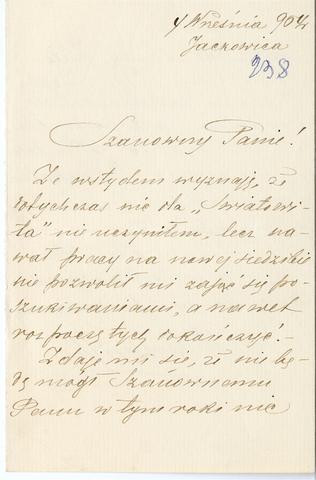 4 Września 904
Jackowica
238
Szanowny Panie!
Ze wstydem wyznaję, że
dotychczas nic dla „Światowi-
ta" nie uczyniłem, lecz na-
wał pracy na nowej siedzibie
nie pozwolił mi zająć się po-
szukiwaniami, a nawet
rozpoczętych dokończyć.-
Zdaje mi się, że nie bę-
dę mógł Szanownemu
Panu w tym roku nic